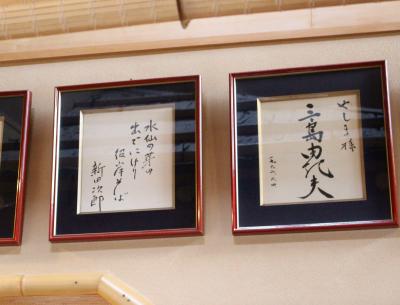 やしま様
三島由紀夫
水仙の芽の
出でにけり
彼岸そば
新田次郎